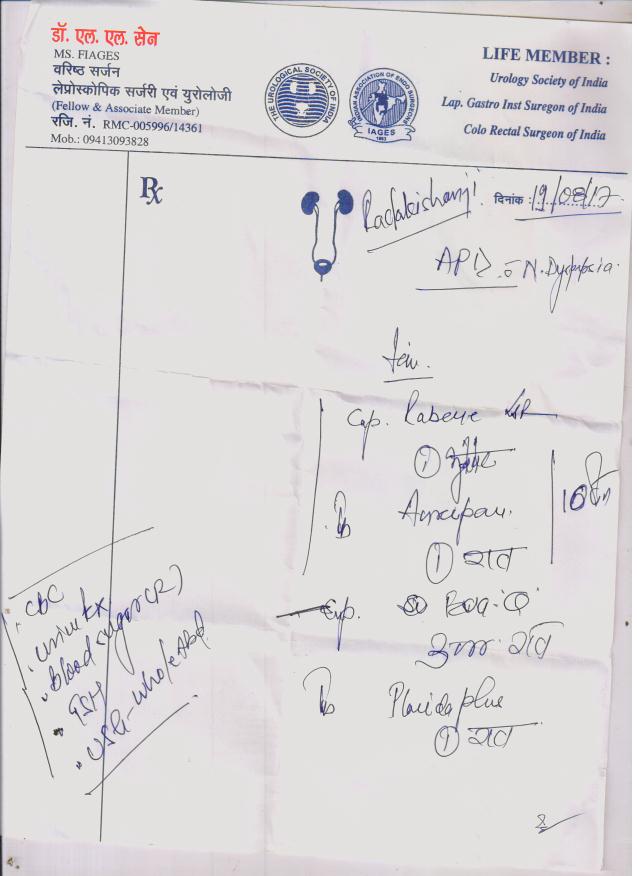 डॉ. एल. एल. सेन
MS. FIAGES
वरिष्ठ सर्जन
लेप्रोस्कोपिक सर्जरी एवं युरोलोजी
(Fellow & Associate Member)
रजि. नं. RMC-005996/14361
Mob.: 09413093828
THE UROLOGICAL SOCIETY OF INDIA
INDIAN ASSOCIATION OF ENDO SURGEONS
IAGES
1993
LIFE MEMBER :
Urology Society of India
Lap. Gastro Inst Suregon of India
Colo Rectal Surgeon of India
Rx
Radakishanji
दिनांक : 19/08/17
APD N. Dyspepsia
Cap. Rabeye DSR
1
1 रात
Cap.
1 रात
CBC
urine
blood sugar (R)
TSH
USG-whole Abd